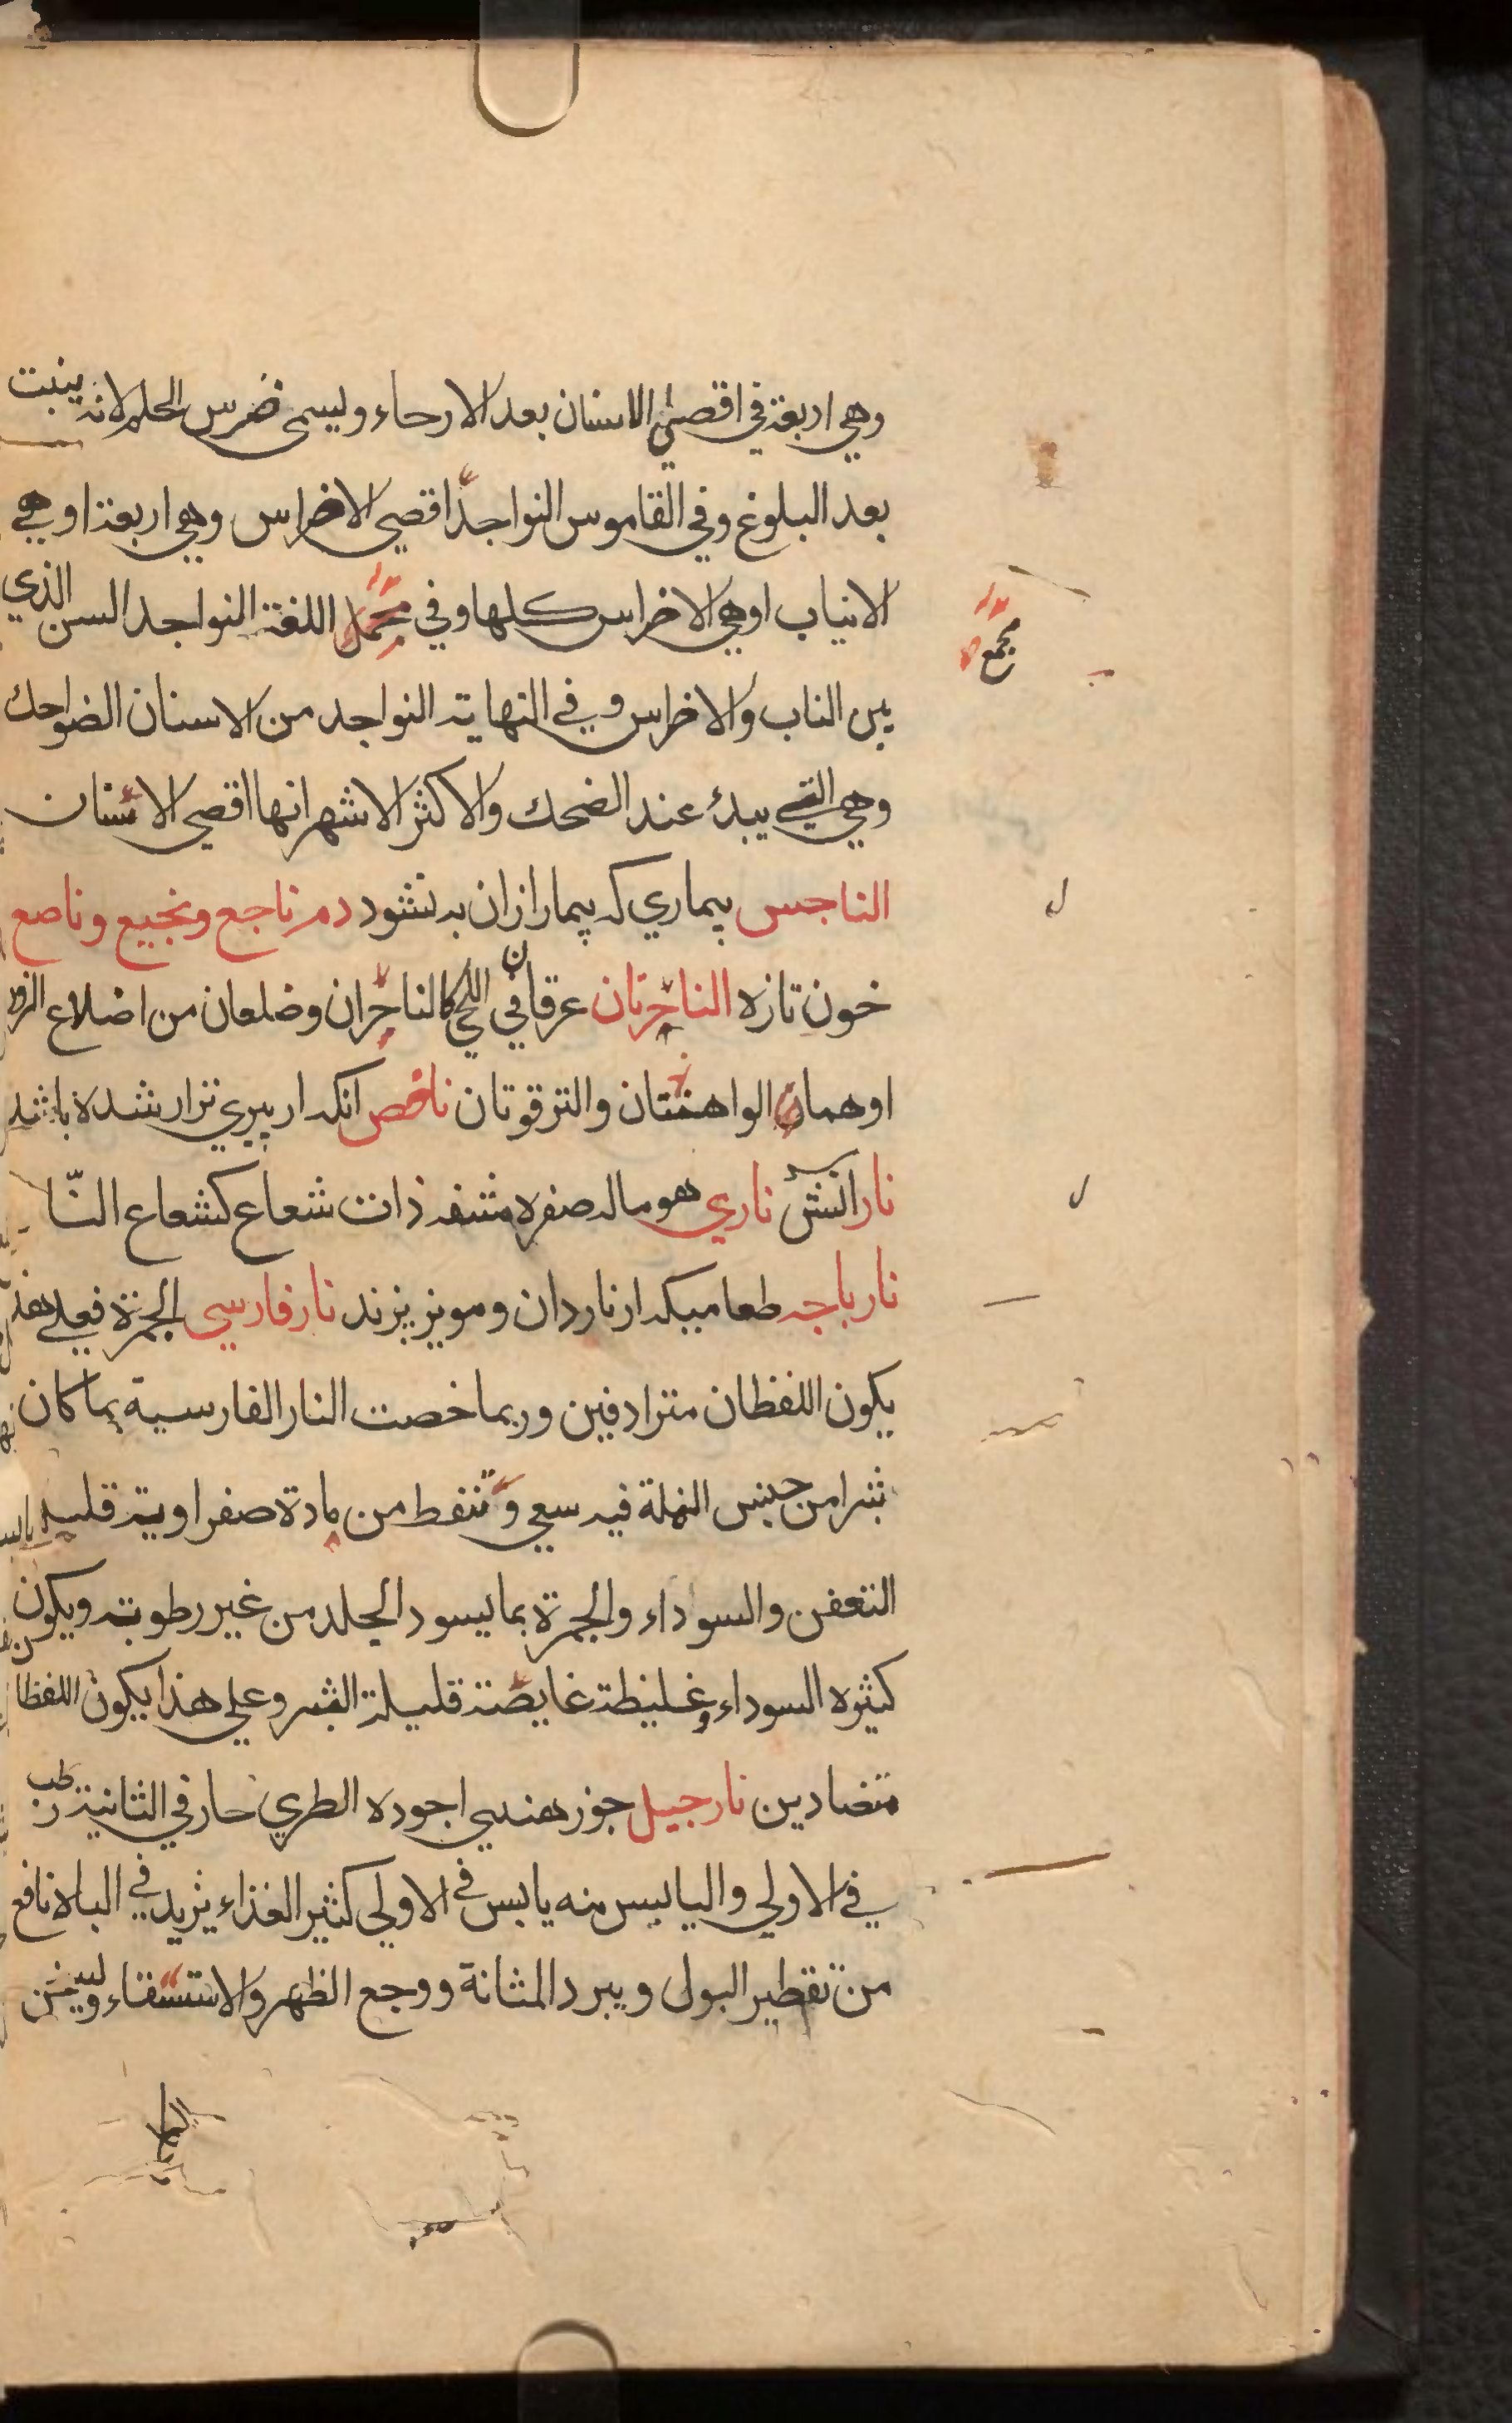 وهي اربعة في اقصى الاسنان بعد الارحاء وليسمى ضرس الحلم لانه ينبت
بعد البلوغ وفي القاموس النواجد اقصى الاضراس وهي اربعة او هي
الانياب اوهي الاضراس كلها وفي مجمل اللغة النواجد السن الذي
مجمع
بين الناب والاضراس وفي النهاية النواجد من الاسنان الضواحك
وهي التي يبدء عند الضحك والاكثر الاشهر انها اقصى الاسنان
الناجس بيماري كه بيمار ازان به نشود دم ناجع ونجيع وناصع
خون تازه الناحرتان عرقان في اللحي كالناحران وضلعان من اضلاع الزور
اوهما الواهنتان والترقوتان ناخص انكه از پيري نزار شده باشد
نار اتش ناري هو ماله صفره مشفه ذات شعاع كشعاع النّار
نارباجه طعاميكه از ناردان ومويز پزند نار فارسي الجمرة فعلى هذ
يكون اللفظان مترادفين وربما خصت النار الفارسية بما كان
بثرا من جنس النملة فيه سعي وتنفط من مادة صفراوية قليله
التعفن والسوداء والجمرة بما يسود الجلد من غير رطوبة ويكون
كثيره السوداء وغليظة غايصة قليلة البثر وعلى هذا يكون اللفظان
متضادين نارجيل جوز هندي اجوده الطري حار في الثانية رطب
في الاولي واليابس منه يابس في الاولى كثير الغذاء يزيد في الباه نافع
من تقطير البول وبرد المثانة ووجع الظهر والاستسقاء